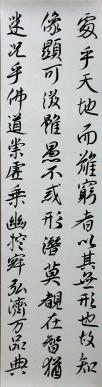 處乎天地而難窮者以其無形也故知
像顯可徵雖愚不惑形潛莫覩在智猶
迷況乎佛道崇虛乗幽控寂弘濟万品典